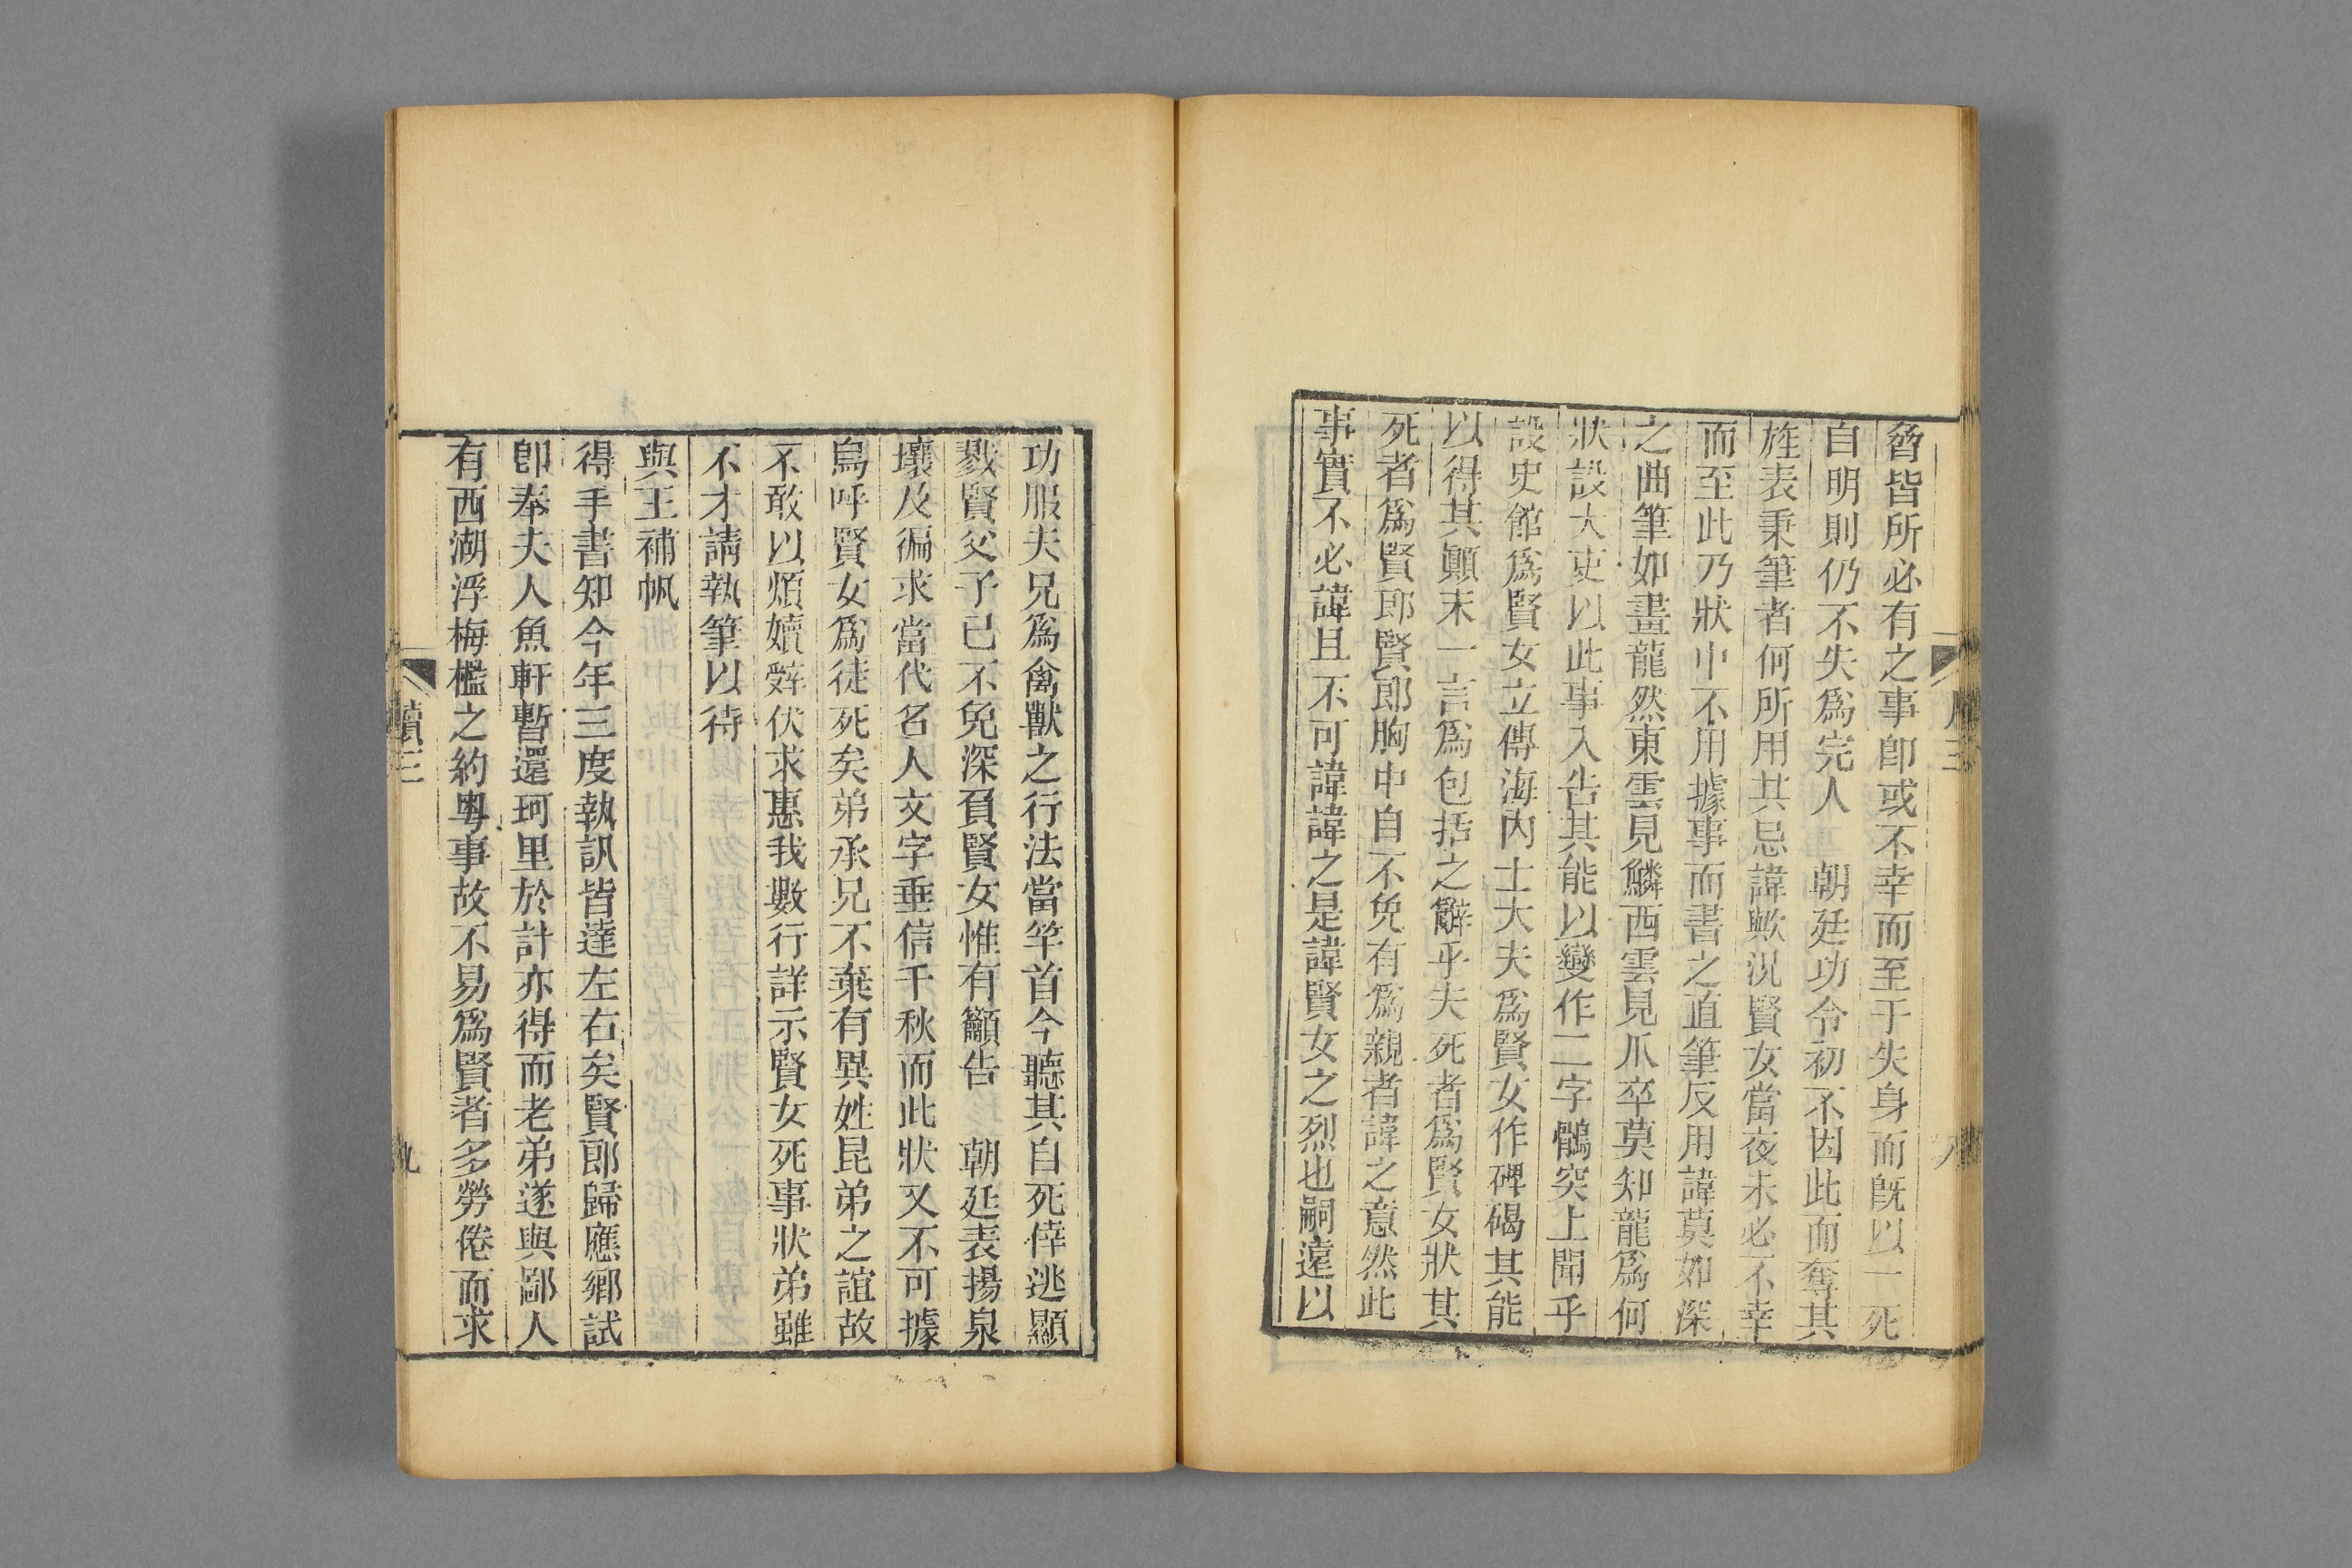 脅皆所必有之事卽或不幸而至于失身而旣以一死
自明則仍不失爲完人　朝廷功令初不因此而奪其
旌表秉筆者何所用其忌諱歟況賢女當夜未必不幸
而至此乃狀中不用據事而書之直筆反用諱莫如深
之曲筆如畫龍然東雲見鱗西雲見爪卒莫知龍爲何
狀設大吏以此事入告其能以變作二字鶻突上聞乎
設史館爲賢女立傳海內士大夫爲賢女作碑碣其能
以得其顚末一言爲包括之辭乎夫死者爲賢女狀其
死者爲賢郎賢郎胸中自不免有爲親者諱之意然此
事實不必諱且不可諱諱之是諱賢女之烈也嗣遠以
三
八
功服夫兄爲禽獸之行法當竿首今聽其自死倖逃顯
戮賢父子已不免深負賢女惟有籲告　朝廷表揚泉
壤及徧求當代名人文字垂信千秋而此狀又不可據
烏呼賢女爲徒死矣弟承兄不棄有異姓昆弟之誼故
不敢以煩嬻辭伏求惠我數行詳示賢女死事狀弟雖
不才請執筆以待
與王補帆
得手書知今年三度執訊皆達左右矣賢郎歸應鄉試
卽奉夫人魚軒暫還珂里於計亦得而老弟遂與鄙人
有西湖浮梅檻之約粤事故不易爲賢者多勞倦而求
牘三
九